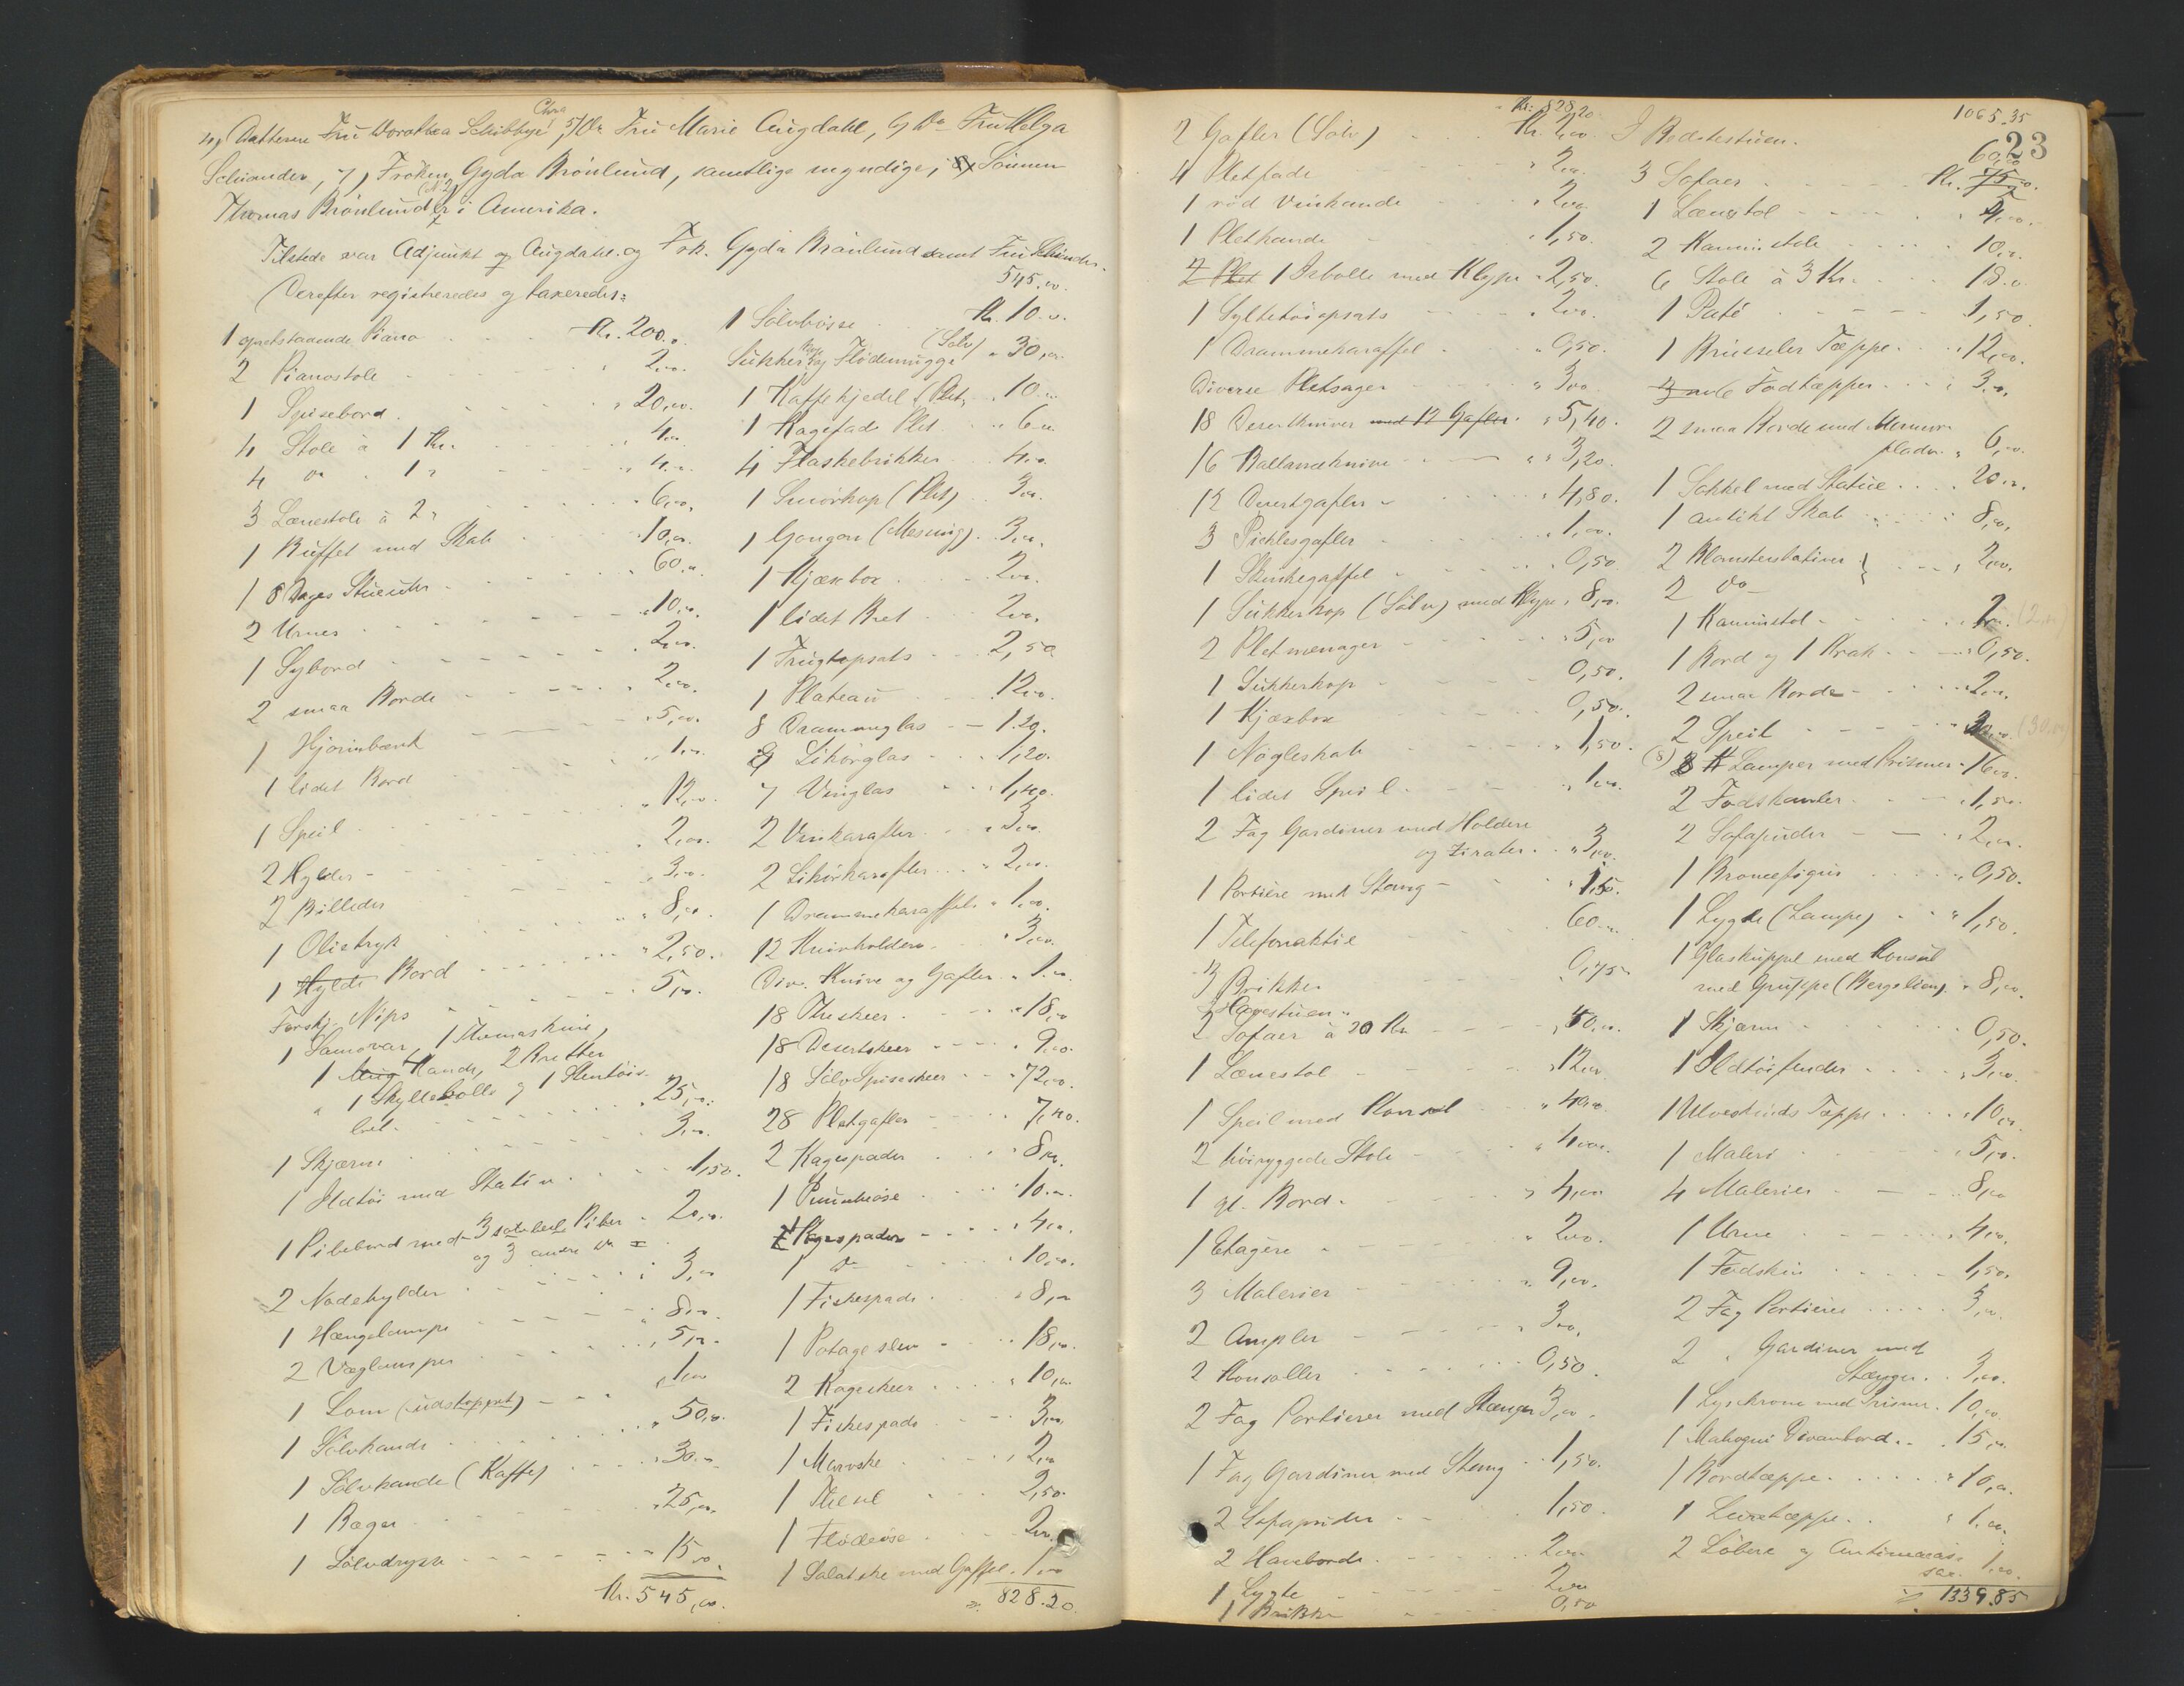 4) Datteren Fru Dorothea Schibbye, 5) Do Fru Marie Augdahl, 6) Do Fru Helga
Schiander, 7) Frøken Gyda Brønlund, samtlige myndige, 8) Sønnen
Thomas Brønlund i Amerika.
Tilstede var Adjunkt Augdahl og Frk. Gyda Brønlund samt Fru Schiander.
Derefter registreredes og taxeredes:
1 opretstaaende Piano Kr. 200.
2 Pianostole 2,00.
1 Spisebord 20,00.
4 Stole à 1 Kr. 4,00
4 do " 1 " 4,00
3 Lænestole à 2 " 6,00.
1 Buffet med Skab 10,00.
1 8 Dages Stueuhr 60,00
2 Urner 10,00.
1 Sybord 2,00.
2 smaa Borde 2,00.
1 Hjørnebænk 5,00.
1 lidet Bord 1,00.
1 Speil 12,00.
2 Hylder 2,00.
2 Billeder 3,00.
1 Olietryk 8,00.
1 Hylde Bord 2,50.
Forskj. Nips 5,00.
1 Samovar, 1 Themaskine,
1 Kande, 2 Bretter
1 Skyllebolle og 1 Stentøis-
25,00.
1 Skjærm 3,00.
1 Ildtøi med Stativ 1,50.
1 Pibebord med 3 Piber 20,00.
og 3 andre do
2 Nodehylder 3,00
1 Hængelampe 8,00.
2 Væglamper 5,00.
1 Lom (udstoppet) 1,00
1 Sølvkande 50,00.
1 Sølvkande (Kaffe) 30,00
1 Bæger 25,00.
1 Sølvdrysse 15,00.
Kr. 545,00.
545,00.
1 Sølvbøsse Kr. 10,00.
Sukker og Flødemugge (Sølv) 30,00.
1 Kaffekjedel (Plet) 10,00
1 Kagefade Plet 6,00
4 Flaskebrikker 4,00.
1 Smørkop (Plet) 3,00.
1 Gongon (Messing) 3,00.
1 Kjæxbox 2,00.
1 lidet Bret 2,00.
1 Frugtopsats 2,50
1 Plateau 12,00.
8 Drammeglas 1.20.
9 Likørglas 1,20.
7 Vinglas 1,40.
2 Vinkarafler 3,00.
2 Likørkarafler 2,00.
1 Drammekaraffel 1,00.
12 Knivholdere 3,00.
Div. Knive og Gafler 1,00.
18 Theskeer 18,00
18 Desertskeer 9,00.
18 Sølv Spiseskeer 72,00.
28 Pletgafler 7,40.
2 Kagespader 8,00.
1 Punscheøse 10,00.
1 Kagespader 4,00.
1 do 10,00.
1 Fiskespade 8,00
1 Potageslev 18,00.
2 Kageskeer 10,00.
1 Fiskespade 3,00.
1 Marvske 2,00
1 Thesil 2,50.
1 Flødeøse 2,00.
1 Salatske med Gaffel 1,00
828.20.
Kr. 828,20.
2 Gafler (Sølv) Kr. 2,00.
4 Pletfade 2,00.
1 rød Vinkande 2,00
1 Pletkande 1,50.
2 Plet 1 Isbolle med Klype 2,50.
1 Syltetøiopsats 2,00.
1 Drammekaraffel 0,50.
Diverse Pletsager 3,00.
18 Desertkniver med 12 Gafler 5,40.
16 Ballancekniver 3,20.
12 Desertgafler 4,80.
3 Picklesgafler 1,00.
1 Skinkegaffel 0,50
1 Sukkerkop (Sølv) med Klype 8,00.
2 Pletmenager 5,00
1 Sukkerkop 0,50.
1 Kjæxbox 0,50.
1 Nøgleskab 1,50.
1 lidet Speil 1,00.
2 Fag Gardiner med Holdere
og Zirater 3,00.
1 Portière med Stang 1,50.
1 Telefonaktie 60,00
3 Brikker 0,75
Havestuen.
2 Sofaer à 20 Kr. 40,00.
1 Lænestol 12,00
1 Speil med Konsol 40,00
2 høiryggede Stole 4,00.
1 gl. Bord 4,00
1 Etagère 2,00.
3 Malerier 9,00.
2 Ampler 3,00.
2 Konsoller 0,50.
2 Fag Portierer med Stænger 3,00.
1 Fag Gardiner med Stang 1,50.
2 Sofapuder 1,50.
2 Haveborde 2,00
1 Lygte 2,00
1 Brikke 0,50
1065.35
23
I Bedstestuen.
60,00
3 Sofaer Kr. 75,00.
1 Lænstol 4,00.
2 Kaminstole 10,00.
6 Stole à 3 Kr. 18,00
1 Paté 1,50.
1 Brüsseler Tæppe 12,00.
Fodtæpper 3,00.
2 smaa Borde med Marmor-
plader 6,00.
1 Sokkel med Statue 20,00.
1 antikt Skab 8,00.
2 Blomsterstativer } 2,00.
2 do
1 Kaminstol 2,00. (2,00)
1 Bord og 1 Krak 0,50.
2 smaa Borde 2,00.
2 Speil 30,00. (30.00)
(8) Lamper med Prismer 16,00.
2 Fodskamler 1,50.
2 Sofapuder 2,00.
1 Broncefigur 0,50.
1 Lygte (Lampe) 1,50.
1 Glaskuppel med Konsol
med Gruppe (Bergslien) 8,00.
1 Skjærm 0,50.
1 Ildtøifender 3,00.
1 Ulveskinds Tæppe 10,00.
1 Maleri 5,00.
4 Malerier 8,00
1 Urne 4,00.
1 Fodskin 1,50.
2 Fag Portierer 3,00.
2 " Gardiner med
Stænger 3,00.
1 Lyskrone med Prismer 10,00.
1 Mahogni Divanbord 15,00
1 Bordtæppe 10,00.
1 Luretæppe 1,00.
2 Løbere og Antimacas-
sar 1,00.
1339.85